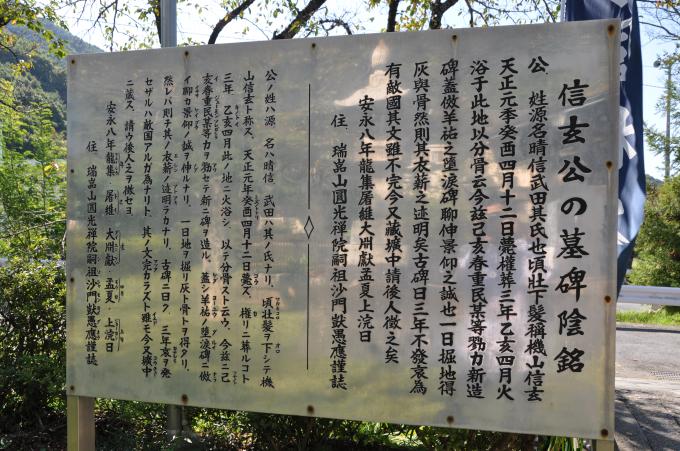 信玄公の墓碑陰銘
公、姓源名晴信武田其氏也頃壮下髮稱機山信玄
天正元季癸酉四月十二日薨権葬三年乙亥四月火
浴于此地以分骨云今茲己亥春重民某等勠力新造
碑蓋倣羊祜之墮淚碑聊伸景仰之誠也一日掘地得
灰與骨然則其衣薪之迹明矣古碑曰三年不發哀為
有敵國其文雖不完今又藏壙中請後人徴之矣
安永八年龍集屠維大淵獻孟夏上浣日
住、瑞嵓山圓光禅院嗣祖沙門猷愚應謹誌
公ノ姓ハ源、名ハ晴信、武田ハ其ノ氏ナリ、頃壮髪ヲ下シテ機
山信玄ト称ス、天正元年癸酉四月十二日薨ズ、権リニ葬ルコト
三年、乙亥四月此ノ地ニ火浴シ、以テ分骨スト云ウ、今茲ニ己
亥春重民某等力ヲ勠セテ新ニ碑ヲ造ル、蓋シ羊祜ノ墮淚碑ニ倣
イ聊カ景仰ノ誠ヲ伸ルナリ、一日地ヲ掘リ灰ト骨トヲ得タリ、
然レバ則チ其ノ衣薪ノ迹明ラカナリ、古碑ニ曰ク、三年哀ヲ発
セザルハ敵国アルガ為ナリト、其ノ文完カラズト雖モ今又壙中
ニ蔵ス、請ウ後人之ヲ徴セヨ、
安永八年龍集・屠維・大淵獻・孟夏・上浣日
住、瑞嵓山圓光禅院嗣祖沙門猷愚應謹誌